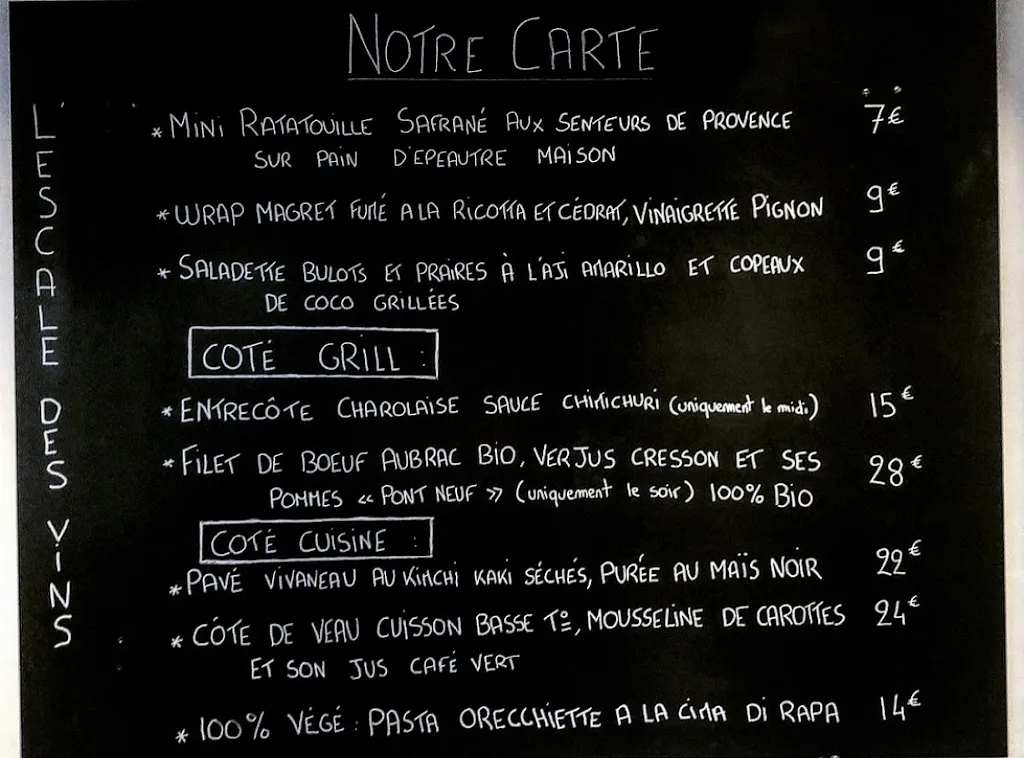 NOTRE CARTE
L'ESCALE DES VINS
* MINI RATATOUILLE SAFRANÉ AUX SENTEURS DE PROVENCE 7€
SUR PAIN D'EPEAUTRE MAISON
* WRAP MAGRET FUMÉ A LA RICOTTA ET CÉDRAT, VINAIGRETTE PIGNON 9€
* SALADETTE BULOTS ET PRAIRES À L'AJI AMARILLO ET COPEAUX 9€
DE COCO GRILLÉES
COTÉ GRILL :
* ENTRECÔTE CHAROLAISE SAUCE CHIMICHURI (uniquement le midi) 15€
* FILET DE BOEUF AUBRAC BIO, VERJUS CRESSON ET SES 28€
POMMES « PONT NEUF » (uniquement le soir) 100% BIO
COTÉ CUISINE :
* PAVÉ VIVANEAU AU KIMCHI KAKI SÉCHÉS, PURÉE AU MAÏS NOIR 22€
* CÔTE DE VEAU CUISSON BASSE Tº, MOUSSELINE DE CAROTTES 24€
ET SON JUS CAFÉ VERT
* 100% VÉGÉ : PASTA ORECCHIETTE A LA CIMA DI RAPA 14€